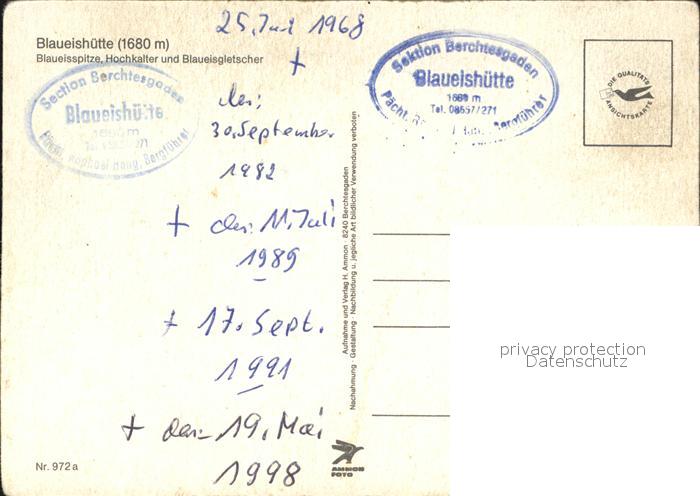 25. Juli 1968
Blaueishütte (1680 m)
Blaueisspitze, Hochkalter und Blaueisgletscher
+
Section Berchtesgaden
Blaueishütte
1680 m
Raphael Hang, Bergführer
Sektion Berchtesgaden
Blaueishütte
1680 m
Tel. 08657/271
Pächt.
Bergführer
DIE QUALITÄTS
ANSICHTSKARTE
30. September
1982
+ den 11. Juli
1989
+ 17. Sept.
1991
+ den 19. Mai
1998
Aufnahme und Verlag H. Ammon · 8240 Berchtesgaden
Nachahmung · Gestaltung · Nachbildung u. jegliche Art bildlicher Verwendung verboten
privacy protection
Datenschutz
Nr. 972a
AMMON
FOTO